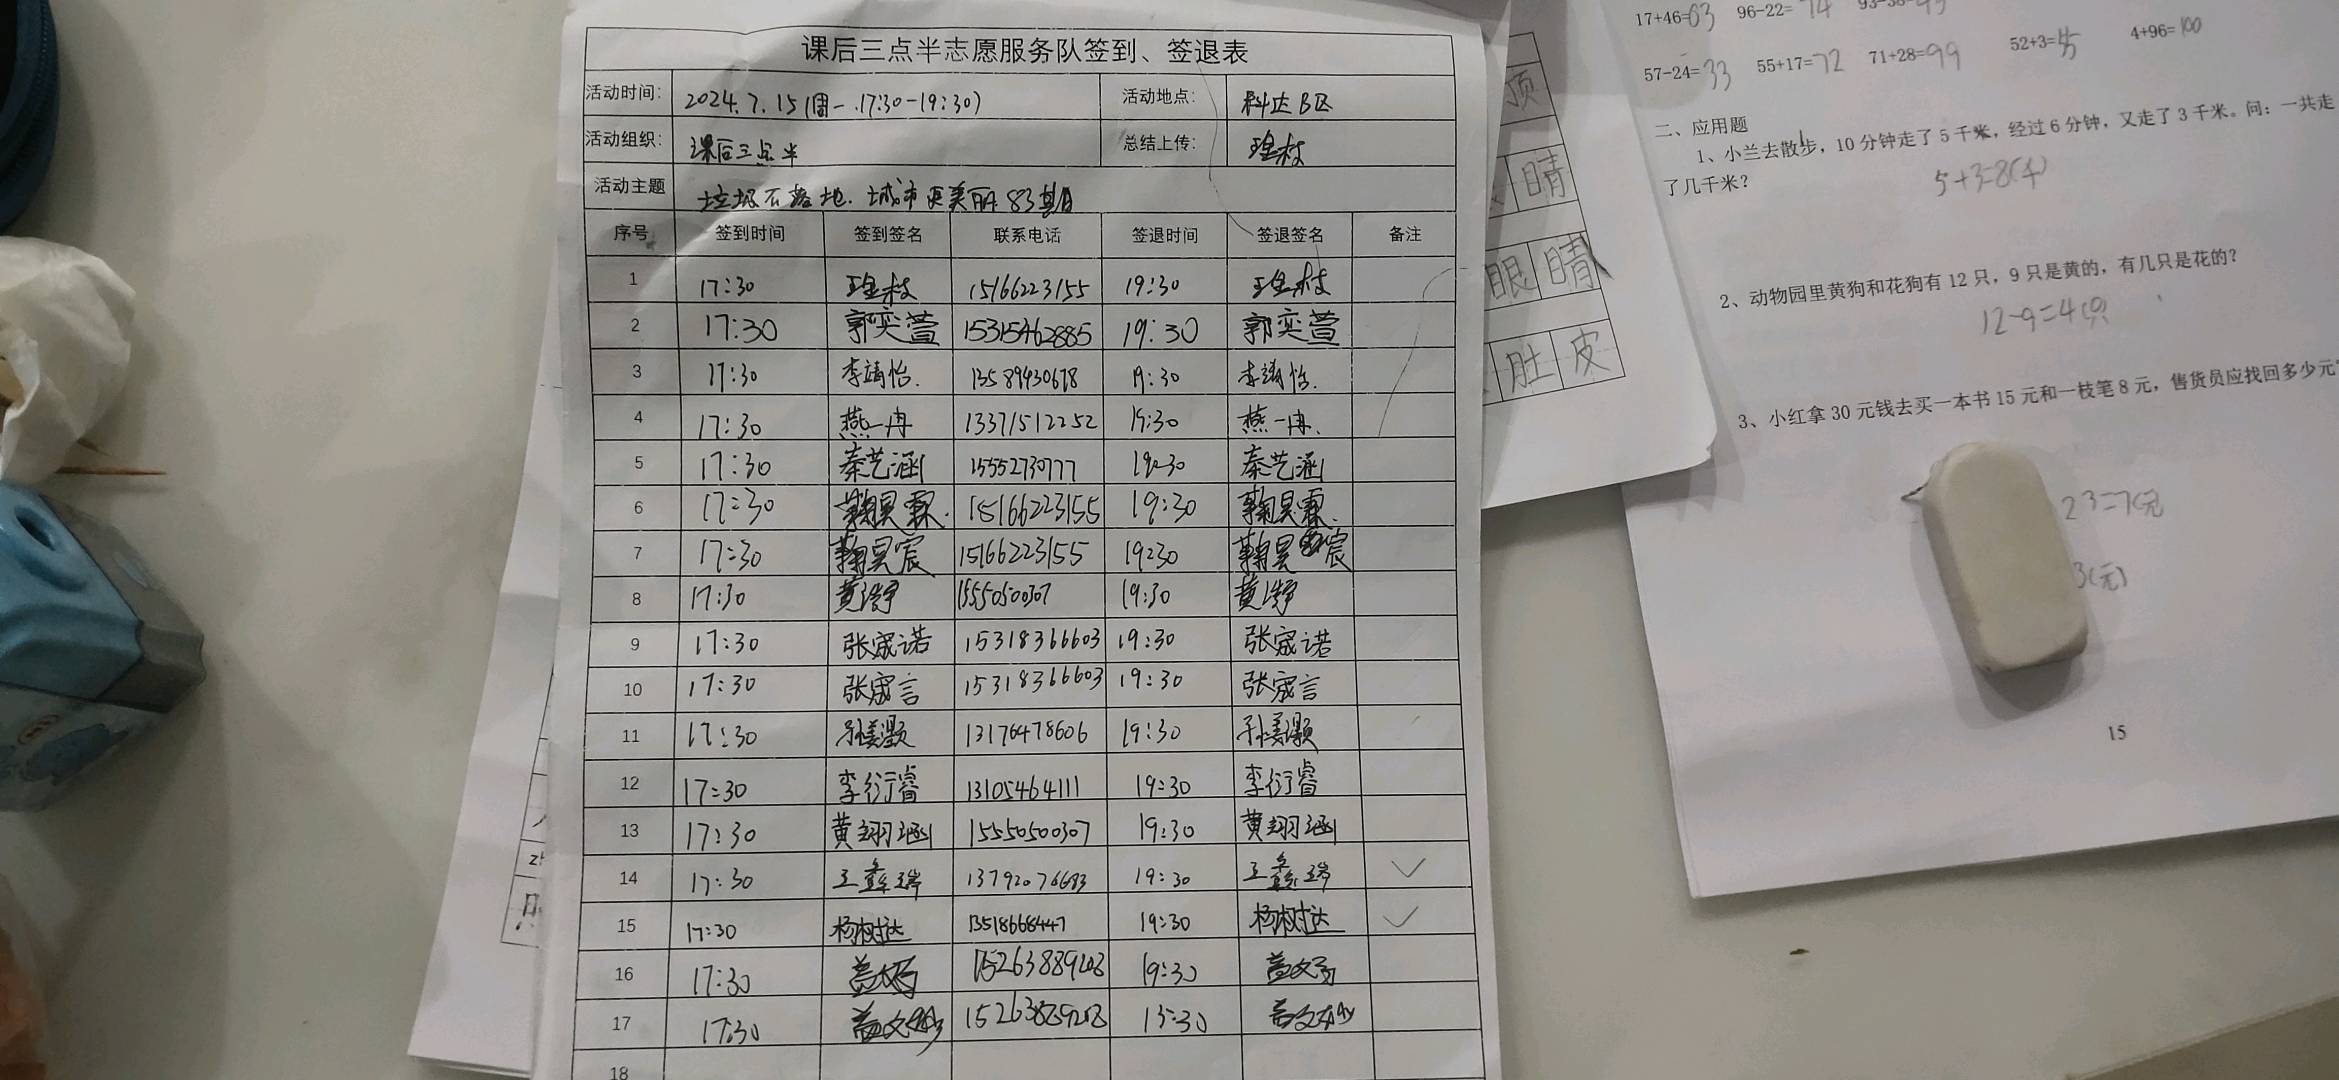 课后三点半志愿服务队签到、签退表
活动时间: 2024.7.15(周一.17:30-19:30) 活动地点: 科达B区
活动组织: 课后三点半 总结上传:
活动主题 垃圾不落地.城市更美丽.83期
序号 签到时间 签到签名 联系电话 签退时间 签退签名 备注
1 17:30 15166223155 19:30
2 17:30 郭奕萱 15315462885 19:30 郭奕萱
3 17:30 李靖怡. 13589430678 19:30 李靖怡.
4 17:30 燕一冉 13371512252 19:30 燕一冉.
5 17:30 秦艺涵 15552730777 19:30 秦艺涵
6 17:30 鞠昊霖. 15166223155 19:30 鞠昊霖.
7 17:30 鞠昊宸 15166223155 19:30 鞠昊宸
8 17:30 15550500307 19:30
9 17:30 张宬诺 15318366603 19:30 张宬诺
10 17:30 张宬言 15318366603 19:30 张宬言
11 17:30 孙美灏 13176478606 19:30 孙美灏
12 17:30 李衍睿 13105464111 19:30 李衍睿
13 17:30 黄翊涵 15550500307 19:30 黄翊涵
14 17:30 王鑫瑞 13792076683 19:30 王鑫瑞 ✓
15 17:30 杨树达 13518668447 19:30 杨树达 ✓
16 17:30 15263889208 19:30
17 17:30 15263889208 15:30
18
顶
睛
眼 睛
肚 皮
17+46=63 96-22=74
57-24=33 55+17=72 71+28=99 52+3=55 4+96=100
二、应用题
1、小兰去散步，10分钟走了5千米，经过6分钟，又走了3千米。问：一共走
了几千米？
5+3=8(千)
2、动物园里黄狗和花狗有12只，9只是黄的，有几只是花的？
12-9=4(只
3、小红拿30元钱去买一本书15元和一枝笔8元，售货员应找回多少元
23=7(元
3(元)
15